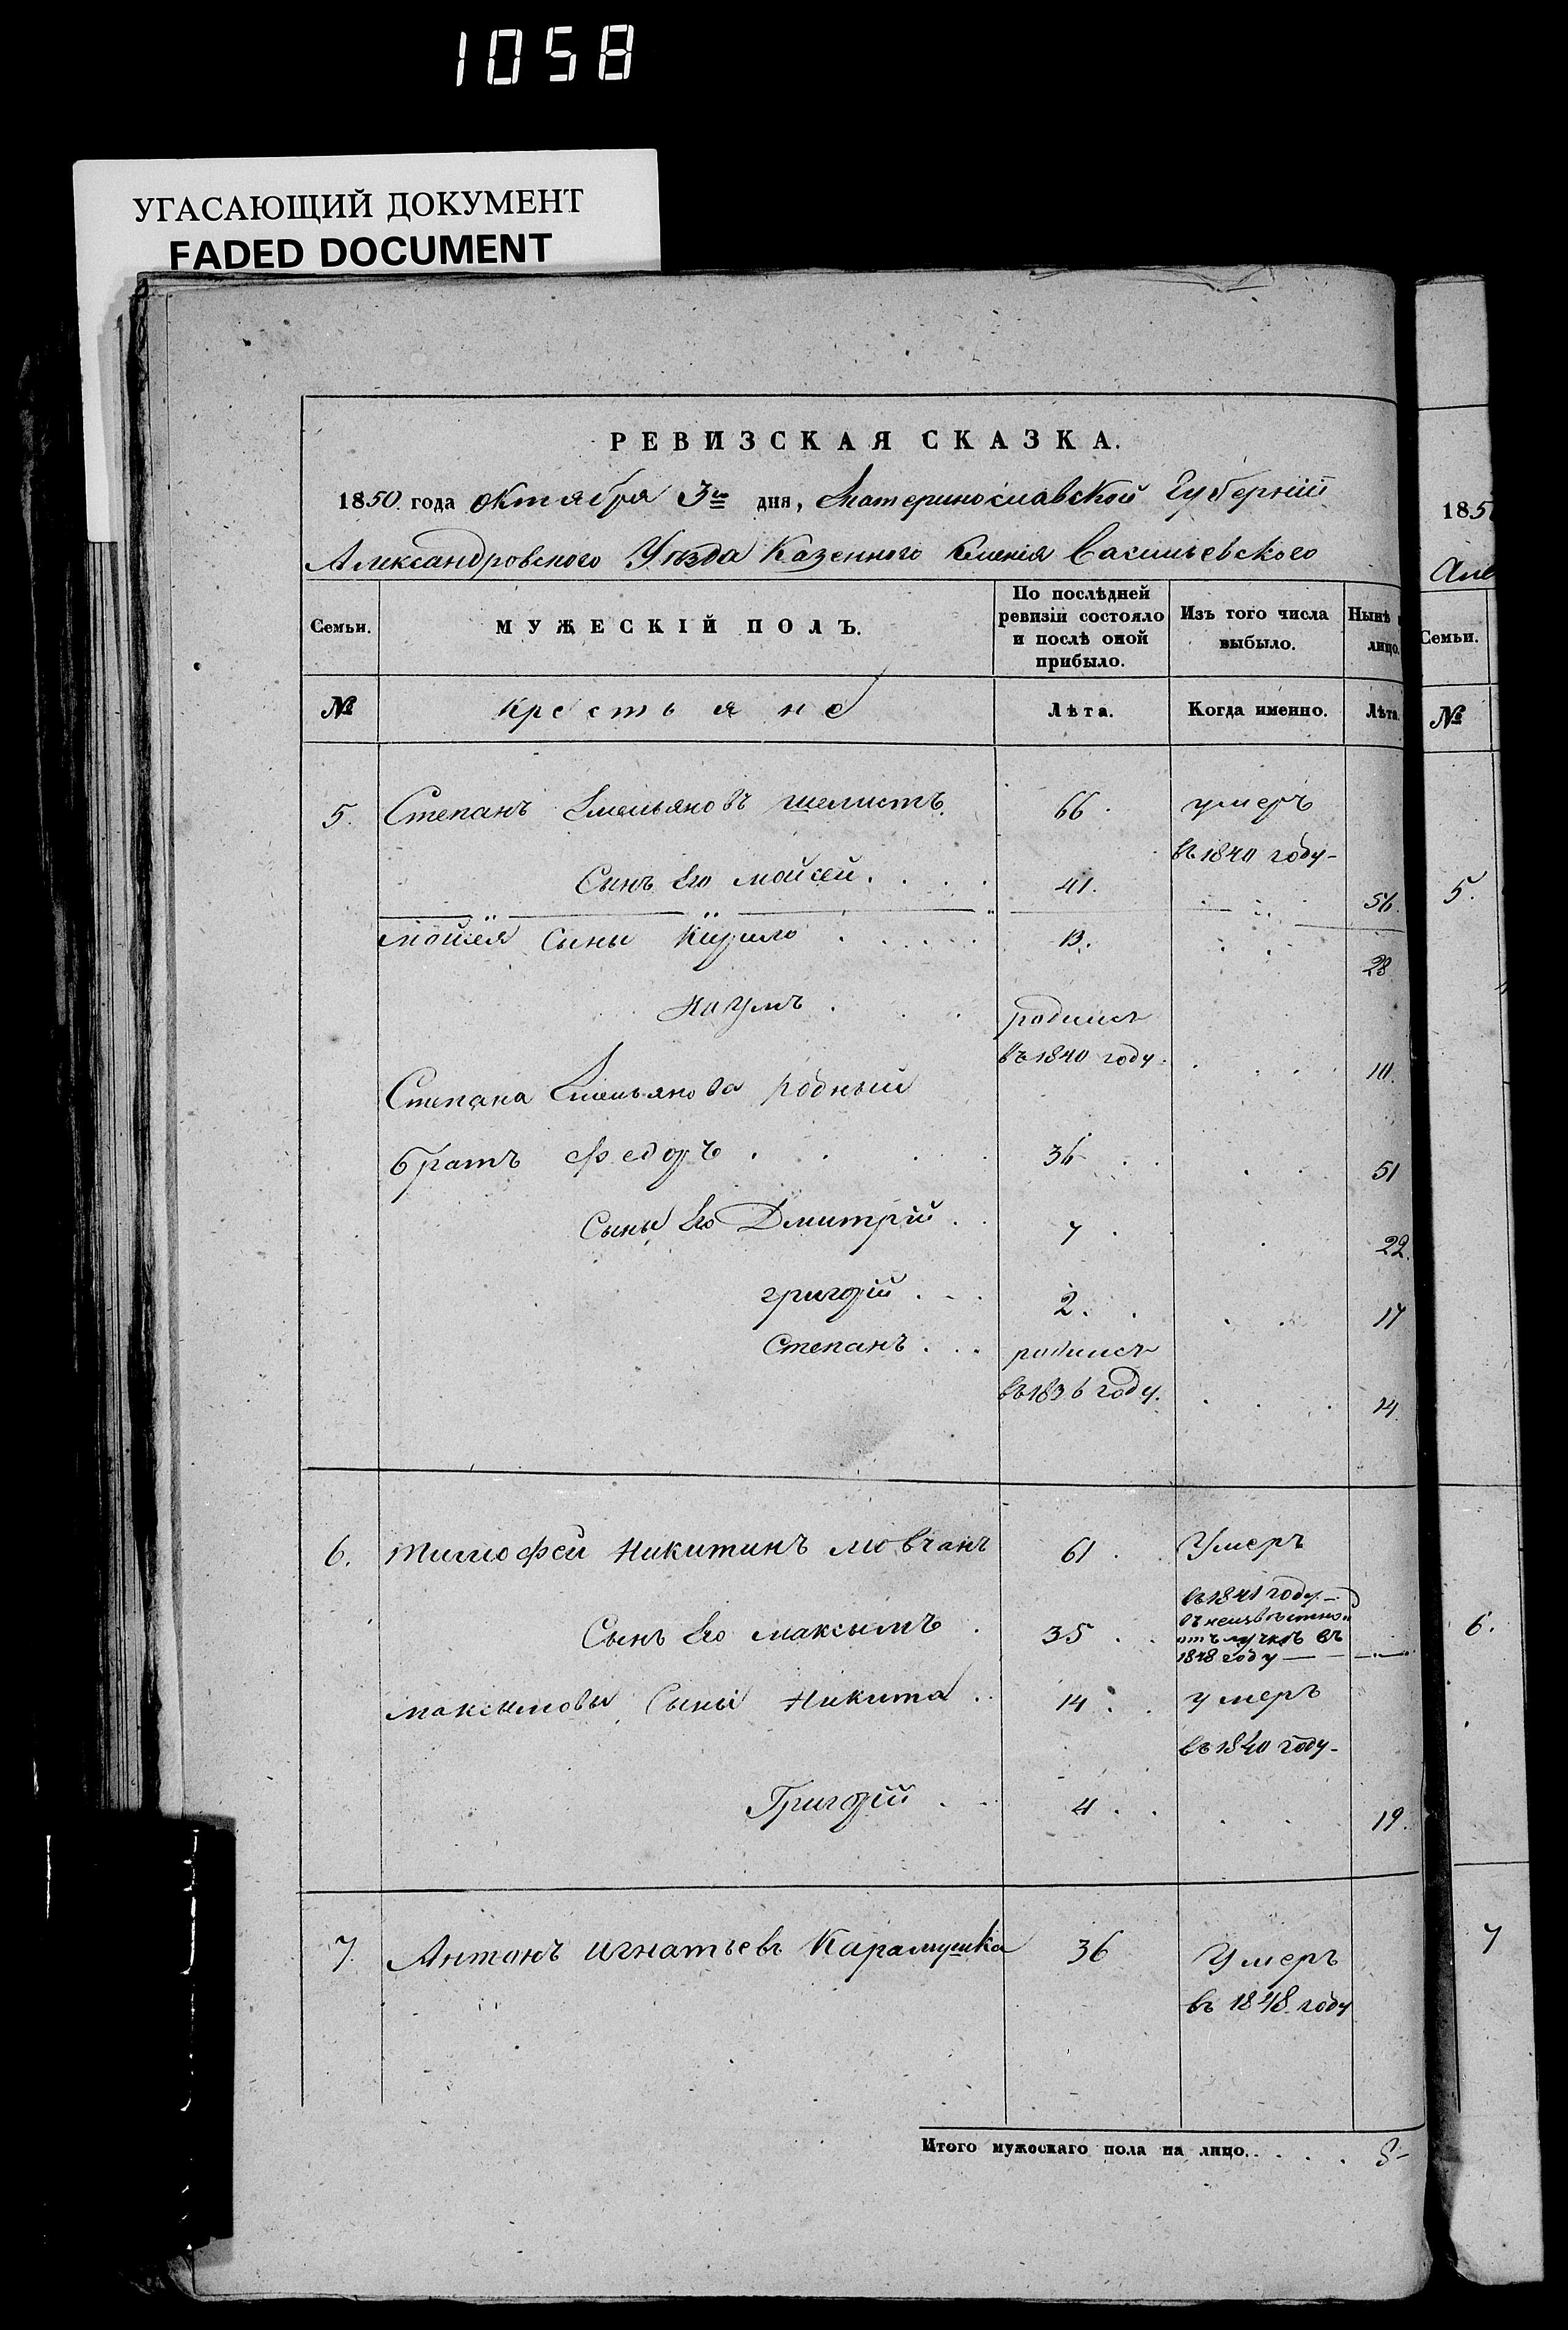 1058
УГАСАЮЩИЙ ДОКУМЕНТ
FADED DOCUMENT
РЕВИЗСКАЯ СКАЗКА.
1850 года октября 3го дня, Екатеринославской Губерніи
Александровского Уезда Казенного Имения Васильевского
Семьи.
МУЖЕСКІЙ ПОЛЪ.
По послѣдней ревизіи состояло и послѣ оной прибыло.
Изъ того числа выбыло.
Нынѣ лицо.
№
Крестьяне
Лѣта.
Когда именно.
Лѣта.
5. Степанъ Емельяновъ шелистъ 66. умеръ
въ 1840 году
Сынъ его мойсей 41. 56.
мойсея Сыны Кирило 13. 28
Наумъ родился
въ 1840 году 10.
Степана Емельянова родный
братъ федоръ 36 51
Сыны его Дмитрій 7 22.
григорій 2. 17
Степанъ родился
въ 1836 году. 14
6. тимофей Никитинъ мовчанъ 61 Умеръ
въ 1841 году
Сынъ его максымъ 35 въ неизвѣстной
отълучкѣ въ
1848 году
максымовы Сыны Никита 14 умеръ
въ 1840 году
Григорій 4 19.
7. Антонъ игнатьевъ Карамушка 36 Умеръ
въ 1848 году
Итого мужескаго пола на лицо. 8
185
Але
Семьи.
№
5.
6.
7